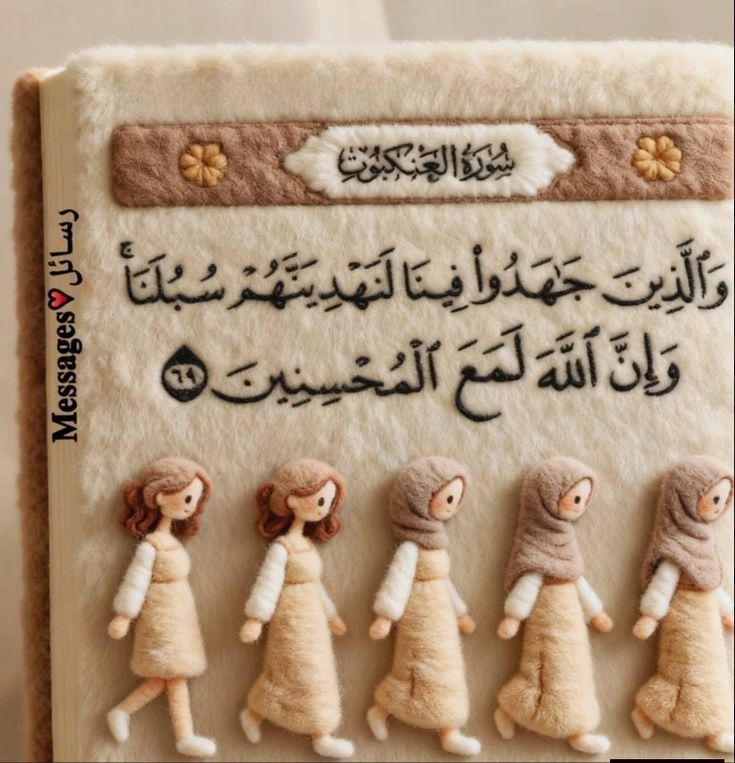 سُورَةُ العَنْكَبُوتِ
وَٱلَّذِينَ جَٰهَدُوا۟ فِينَا لَنَهْدِيَنَّهُمْ سُبُلَنَا ۚ
وَإِنَّ ٱللَّهَ لَمَعَ ٱلْمُحْسِنِينَ ٦٩
Messages♥رسائل